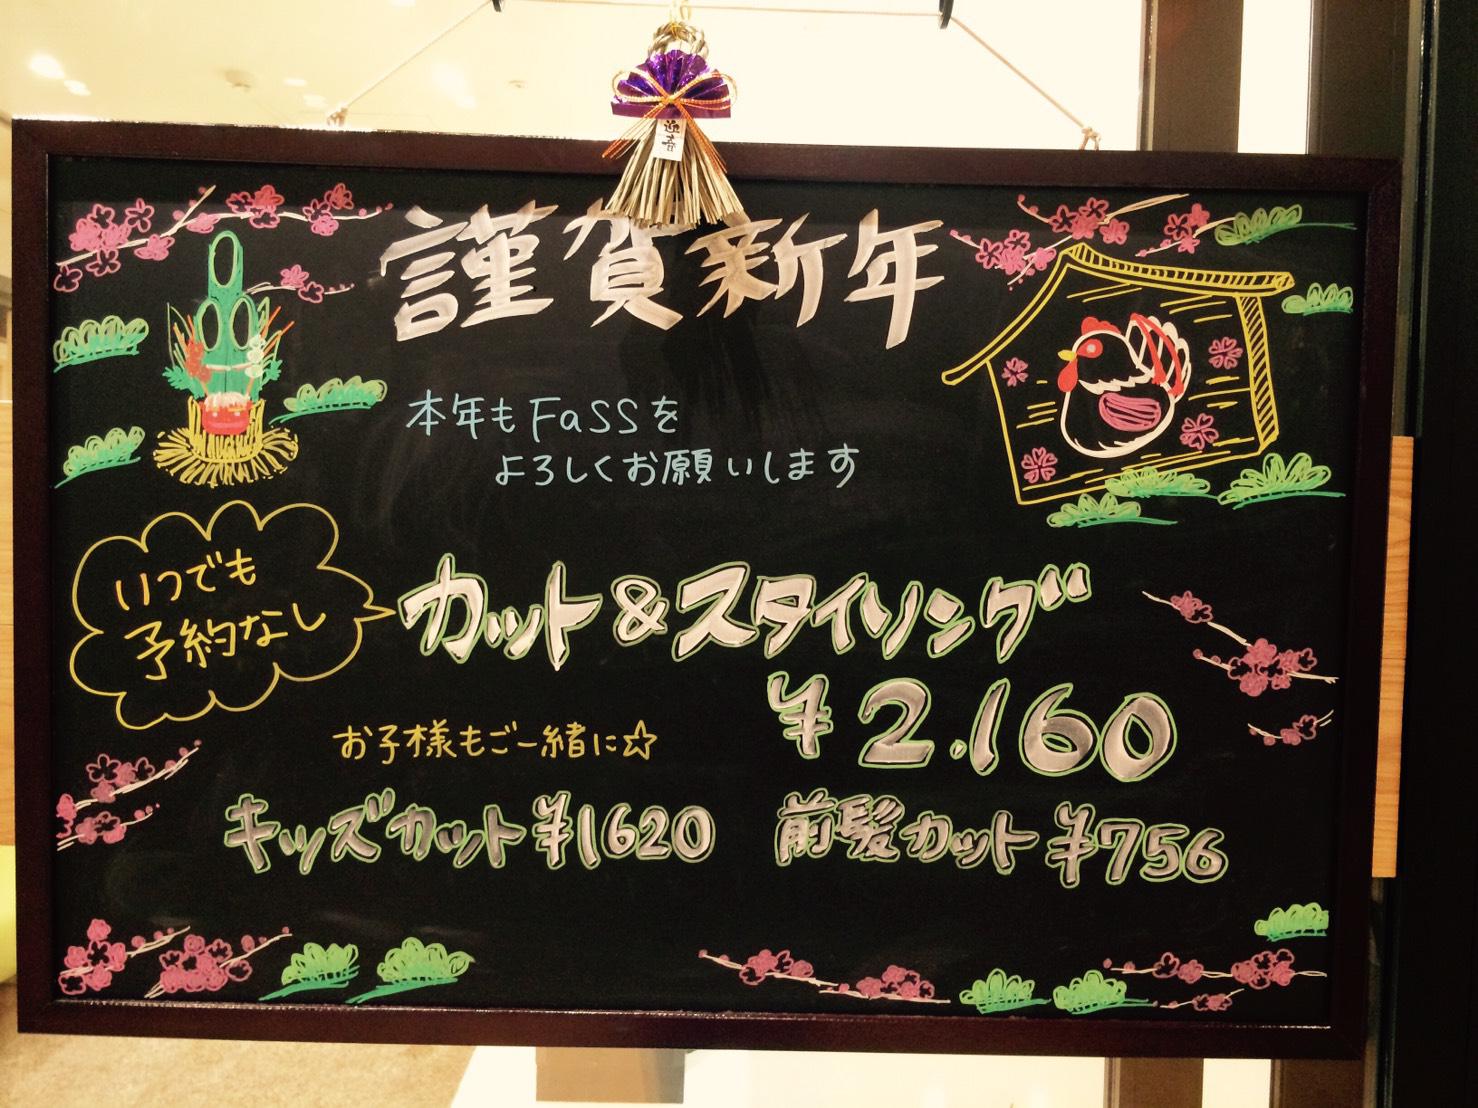 迎春
謹賀新年
本年もFaSSを
よろしくお願いします
いつでも
予約なし
カット&スタイリング
¥2.160
お子様もご一緒に☆
キッズカット¥1620
前髪カット¥756